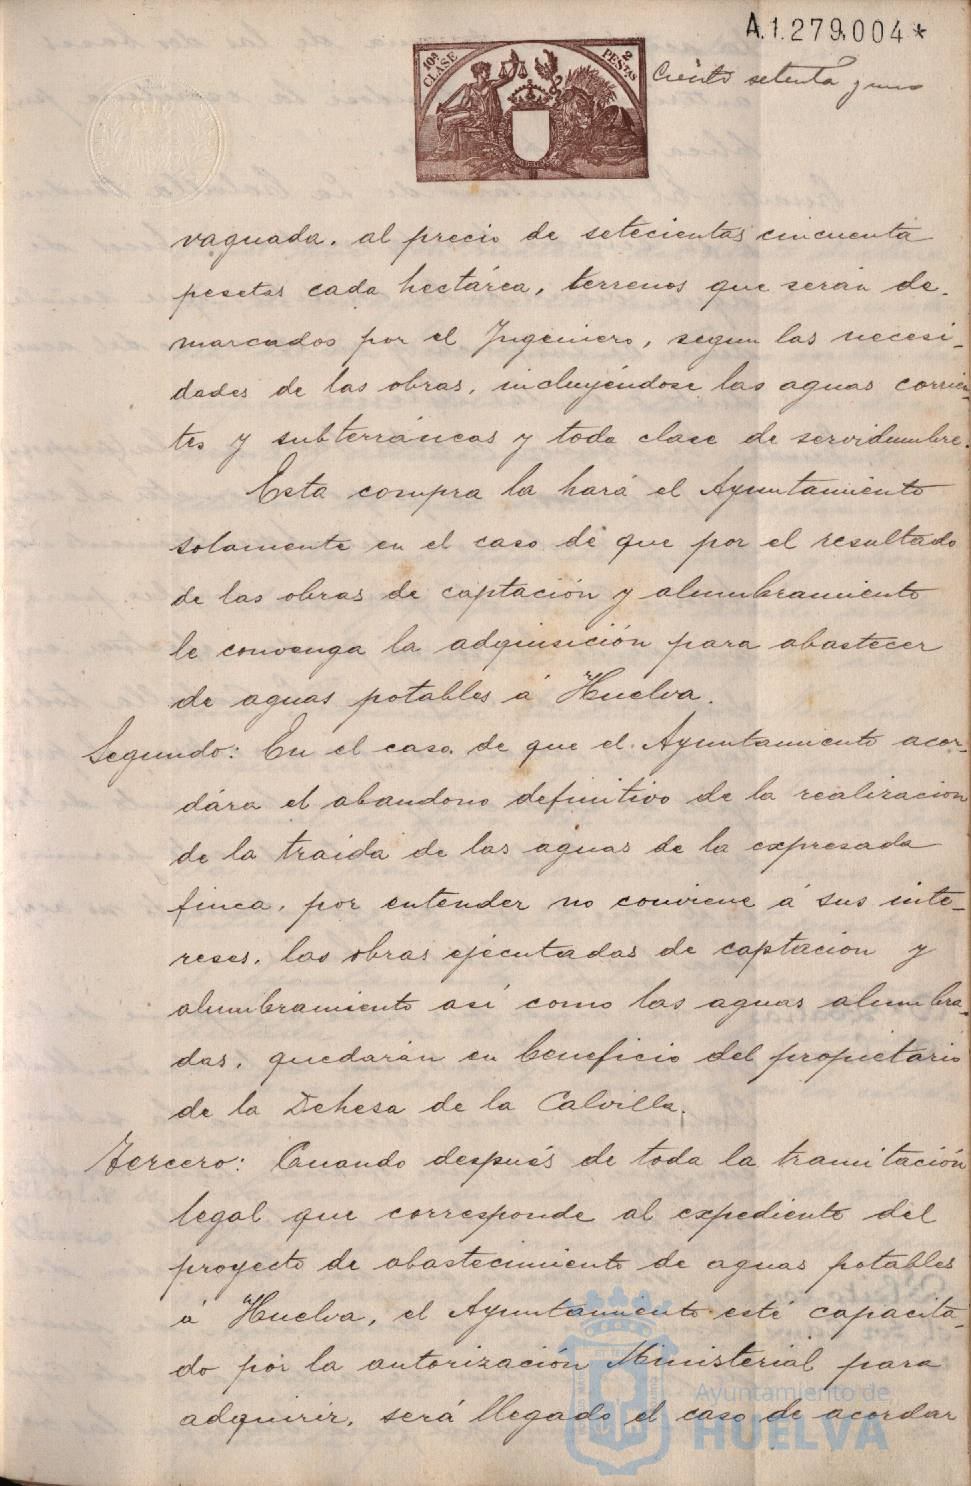 A.1.279,004*
10ª CLASE
2 PESTAS
Ciento setenta y uno
vaguada, al precio de setecientas cincuenta
pesetas cada hectárea, terrenos que serán de-
marcados por el Ingeniero, segun las necesi-
dades de las obras, incluyéndose las aguas corrien-
tes y subterráneas y toda clase de servidumbre.
Esta compra la hará el Ayuntamiento
solamente en el caso de que por el resultado
de las obras de captación y alumbramiento
le convenga la adquisición para abastecer
de aguas potables á Huelva.
Segundo: En el caso de que el Ayuntamiento acor-
dára el abandono definitivo de la realizacion
de la traida de las aguas de la expresada
finca, por entender no conviene á sus inte-
reses, las obras ejecutadas de captacion y
alumbramiento así como las aguas alumbra-
das, quedarán en beneficio del propietario
de la Dehesa de la Calvilla.
Tercero: Cuando después de toda la tramitación
legal que corresponde al expediente del
proyecto de abastecimiento de aguas potables
á Huelva, el Ayuntamiento esté capacita-
do por la autorización Ministerial para
adquirir, será llegado el caso de acordar
Ayuntamiento de
HUELVA